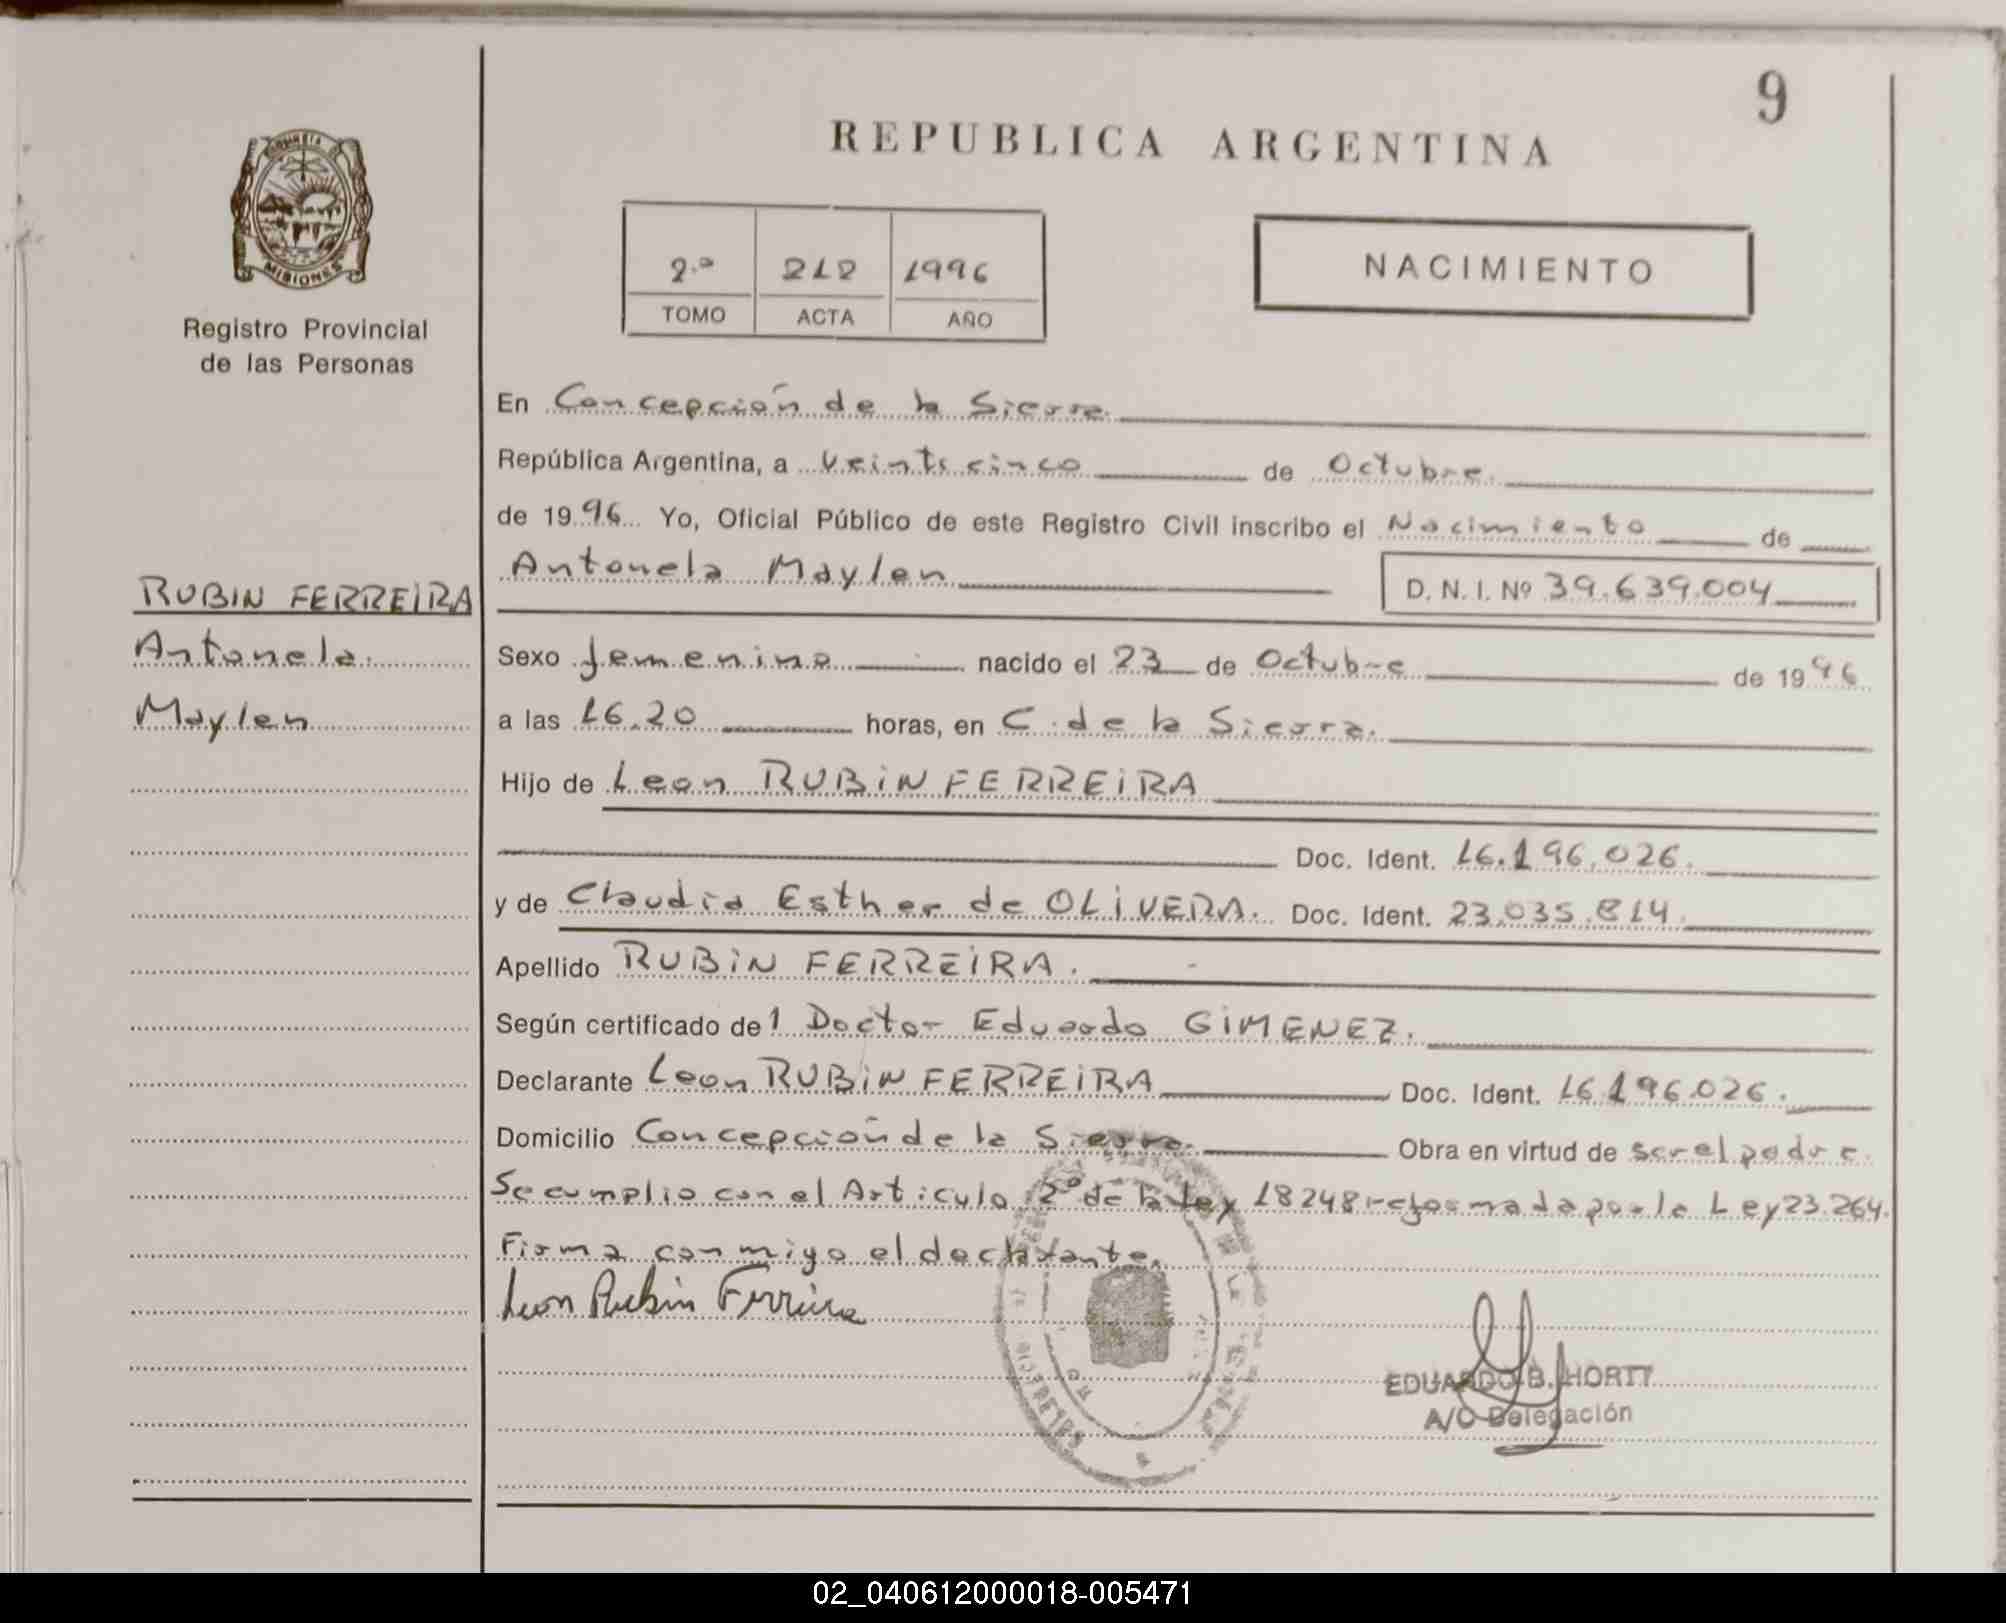 9
REPUBLICA ARGENTINA
MISIONES
Registro Provincial
de las Personas
2.º 212 1996
TOMO ACTA AÑO
NACIMIENTO
En Concepción de la Sierra.
República Argentina, a Veinticinco de Octubre.
de 1996 Yo, Oficial Público de este Registro Civil inscribo el Nacimiento de
Antonela Maylen D. N. I. Nº 39.639.004
RUBIN FERREIRA
Antonela.
Maylen
Sexo femenino nacido el 23 de Octubre de 1996
a las 16.20 horas, en C. de la Sierra.
Hijo de Leon RUBIN FERREIRA
Doc. Ident. 16.196.026.
y de Claudia Esther de OLIVERA. Doc. Ident. 23.035.814.
Apellido RUBIN FERREIRA.
Según certificado del Doctor Eduardo GIMENEZ.
Declarante Leon RUBIN FERREIRA Doc. Ident. 16.196.026.
Domicilio Concepción de la Sierra. Obra en virtud de ser el padre.
Se cumplio con el Articulo 2º de la Ley 18248 reformada por la Ley 23.264.
Firma conmigo el declarante.
Leon Rubin Ferreira
EDUARDO B. HORTT
A/C Delegación
02_040612000018-005471